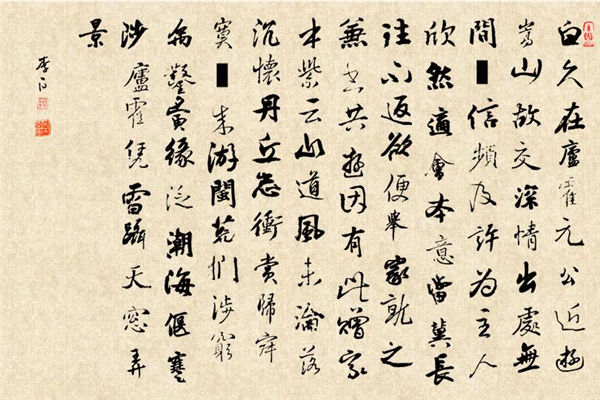 白久在廬霍元公近遊
嵩山故交深情出處無
間信頻及許為主人
欣然適會本意當冀長
往不返欲便舉家就之
兼書共遊因有此贈家
本紫云山道風未淪落
沉懷丹丘志衝賞歸寂
寞來游閩荒們涉窮
禹鑿寅緣泛潮海偃蹇
陟廬霍凭雷躡天窓弄
景
李白